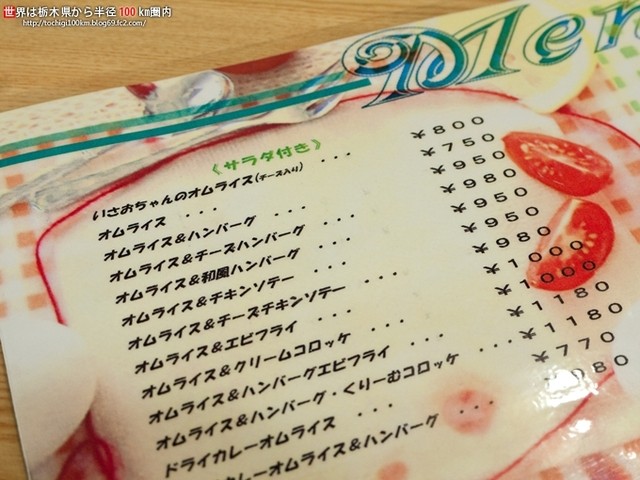 世界は栃木県から半径100km圏内
http://tochigi100km.blog69.fc2.com/
Men
《サラダ付き》
いさおちゃんのオムライス(チーズ入り) ・・・ ¥800
オムライス ・・・ ¥750
オムライス&ハンバーグ ・・・ ¥950
オムライス&チーズハンバーグ ・・・ ¥980
オムライス&和風ハンバーグ ・・・ ¥950
オムライス&チキンソテー ・・・ ¥950
オムライス&チーズチキンソテー ・・・ ¥980
オムライス&エビフライ ・・・ ¥1000
オムライス&クリームコロッケ ・・・ ¥1000
オムライス&ハンバーグエビフライ ・・・ ¥1180
オムライス&ハンバーグ・くりーむコロッケ ・・・ ¥1180
ドライカレーオムライス ・・・ ¥770
カレーオムライス&ハンバーグ ・・・ 980